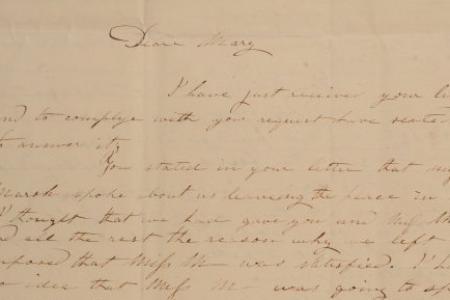 Dear Mary
I have just receiver your l
nd to complye with you request have seate
to answer it;
You stated in your letter that my
Marsh spoke about us leaving the place in
I thought that we had gave you and Miss M
nd all the rest the reason why we left
pposed that Miss M— was satisfied. I h
o idea that Miss M— was going to sp